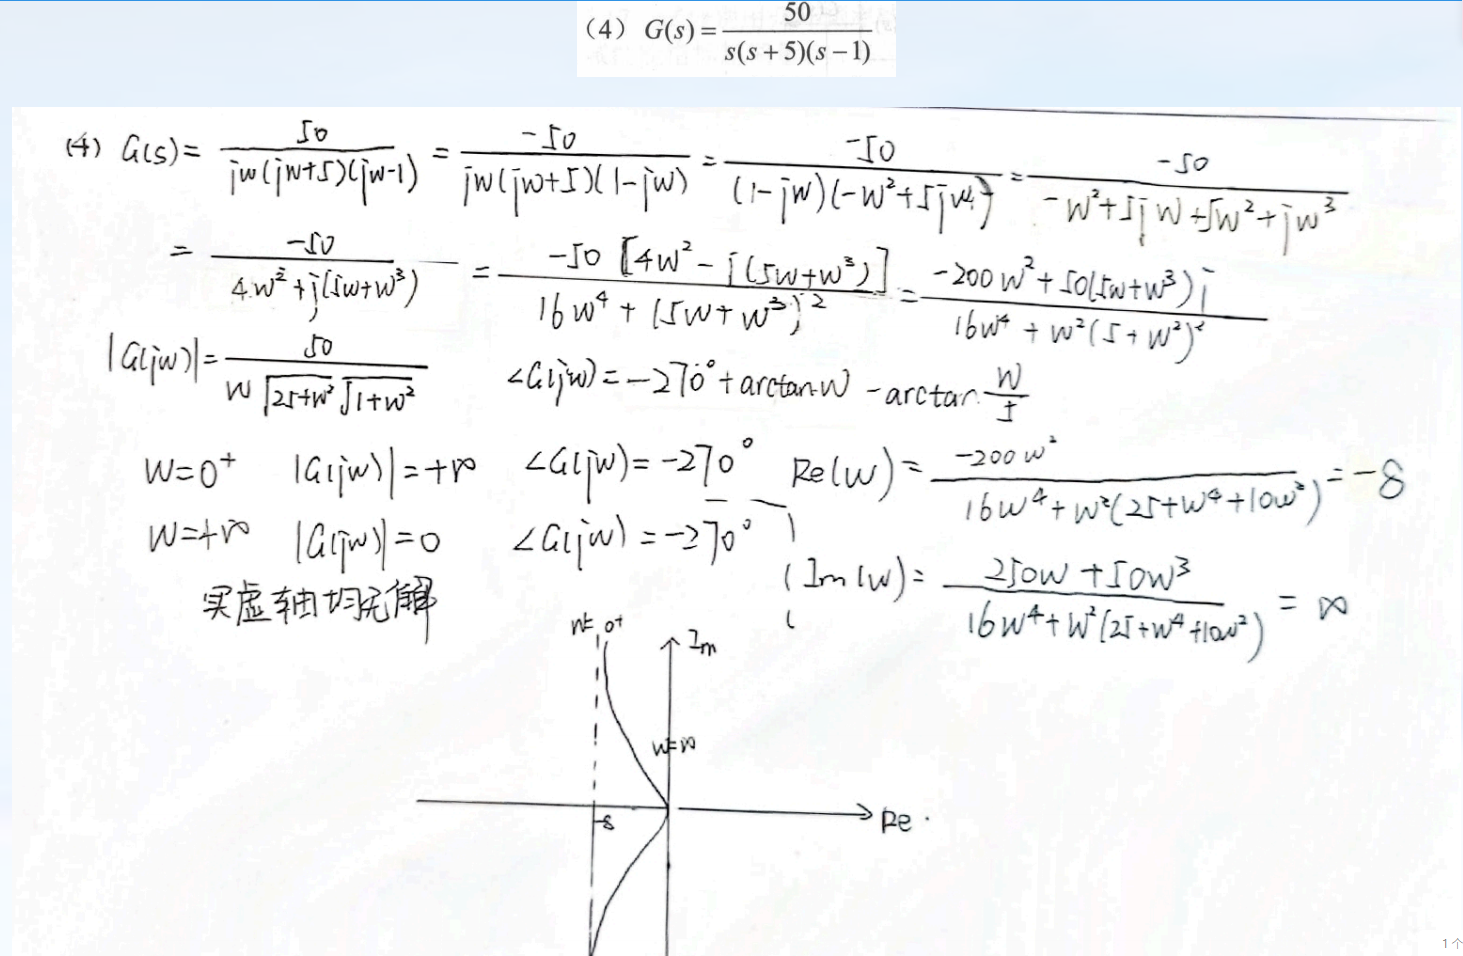 (4) G(s) = 50 / s(s+5)(s−1)
(4) G(s) = 50 / jw(jw+5)(jw-1) = -50 / jw(jw+5)(1-jw) = -50 / (1-jw)(-w²+5jw) = -50 / -w²+5jw+5w²+jw³
= -50 / 4w²+j(5w+w³) = -50[4w²-j(5w+w³)] / 16w⁴+(5w+w³)² = -200w²+50(5w+w³)j / 16w⁴+w²(5+w²)²
|G(jw)| = 50 / w√25+w² √1+w² ∠G(jw) = -270° + arctanw - arctan w/5
w=0⁺ |G(jw)|=+∞ ∠G(jw)=-270° Re(w) = -200w² / 16w⁴+w²(25+w⁴+10w²) = -8
w=+∞ |G(jw)|=0 ∠G(jw)=-270°
Im(w) = 250w+50w³ / 16w⁴+w²(25+w⁴+10w²) = ∞
实虚轴均无解
w=0+
Im
w=∞
-8
Re
1个